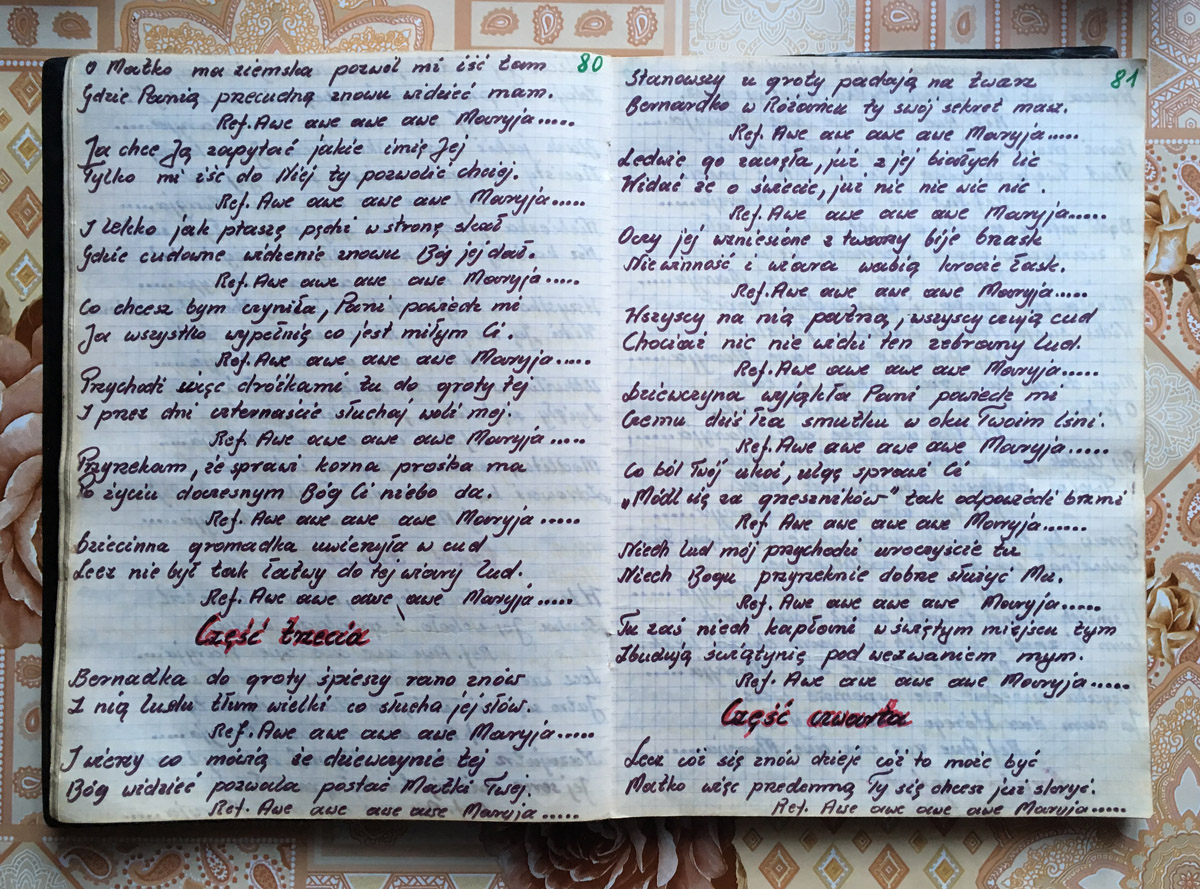 80
O Matko ma ziemska pozwól mi iść tam
Gdzie Panią przecudną znowu widzieć mam.
Ref. Awe awe awe awe Maryja.....
Ja chcę Ją zapytać jakie imię Jej
Tylko mi iść do Niej ty pozwolić chciej.
Ref. Awe awe awe awe Maryja.....
I lekko jak ptaszę pędzi w stronę skał
Gdzie cudowne widzenie znowu Bóg jej dał.
Ref. Awe awe awe awe Maryja.....
Co chcesz bym czyniła, Pani powiedz mi
Ja wszystko wypełnię co jest miłym Ci.
Ref. Awe awe awe awe Maryja.....
Przychodź więc dróżkami tu do groty tej
I przez dni czternaście słuchaj woli mej.
Ref. Awe awe awe awe Maryja.....
Przyrzekam, że sprawi korna prośba ma
Po życiu doczesnym Bóg Ci niebo da.
Ref. Awe awe awe awe Maryja.....
Dziecinna gromadka uwierzyła w cud
Lecz nie był tak łatwy do tej wiary lud.
Ref. Awe awe awe awe Maryja.....
Część trzecia
Bernadka do groty śpieszy rano znów
Z nią ludu tłum wielki co słucha jej słów.
Ref. Awe awe awe awe Maryja.....
I wierzy co mówią że dziewczynie tej
Bóg widzieć pozwala postać Matki Twej.
Ref. Awe awe awe awe Maryja.....
81
Stanowszy u groty padają na twarz
Bernardko w Różańcu ty swój sekret masz.
Ref. Awe awe awe awe Maryja.....
Ledwie go zaczęła, już z jej białych lic
Widać że o świecie, już nic nie wie nic.
Ref. Awe awe awe awe Maryja.....
Oczy jej wzniesione z twarzy bije brask
Niewinność i wiara wabią krocie łask.
Ref. Awe awe awe awe Maryja.....
Wszyscy na nią patrzą, wszyscy czują cud
Chociaż nic nie widzi ten zebrany lud.
Ref. Awe awe awe awe Maryja.....
Dziewczyna wyjąkła Pani powiedz mi
Czemu dziś łza smutku w oku Twoim lśni.
Ref. Awe awe awe awe Maryja.....
Co ból Twój ukoi, ulgę sprawi Ci
„Módl się za grzeszników” tak odpowiedź brzmi
Ref. Awe awe awe awe Maryja.....
Niech lud mój przychodzi uroczyście tu
Niech Bogu przyrzeknie dobrze służyć Mu.
Ref. Awe awe awe awe Maryja.....
Tu zaś niech kapłani w świętym miejscu tym
Zbudują świątynię pod wezwaniem mym.
Ref. Awe awe awe awe Maryja.....
Część czwarta
Lecz cóż się znów dzieje cóż to może być
Matko więc przedemną Ty się chcesz już skryć.
Ref. Awe awe awe awe Maryja.....